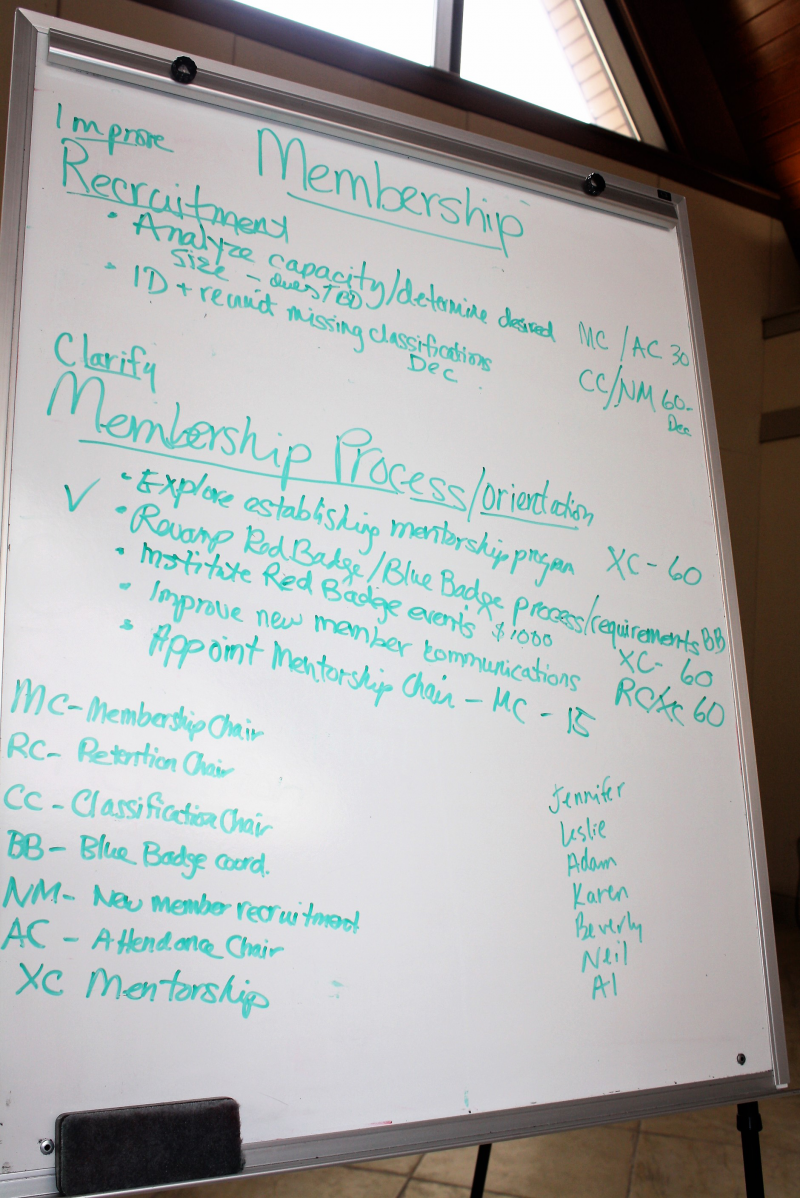 Improve
Membership
Recruitment
• Analyze capacity/determine desired
size - TBD MC/AC 30
• ID + recruit missing classifications
Dec CC/NM 60-
Dec
Clarify
Membership Process/orientation
✓ • Explore establishing mentorship program XC - 60
• Revamp Red Badge/Blue Badge process/requirements BB
• Institute Red Badge events $1000 XC - 60
• Improve new member communications RC/XC 60
• Appoint Mentorship Chair - MC - 15
MC - Membership Chair
RC - Retention Chair
CC - Classification Chair
BB - Blue Badge coord.
NM - New member recruitment
AC - Attendance Chair
XC Mentorship
Jennifer
Leslie
Adam
Karen
Beverly
Neil
Al